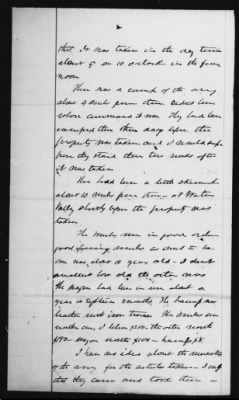 that it was taken in the day time
about 9 or 10 o'clock in the fore
noon
There was a camp of the army
about 4 miles from there
whose command it was They had been
encamped there three days before the
property was taken and I would sup
pose they staid there two weeks after
it was taken
There had been a little skirmish
about 10 miles from there at Waters
Valley shortly before the property was
taken
The mules were in good order
good, mules as went to
one was about 10 years old I don't
how old the other was
The wagon had been in use about a
year or eighteen months The harness was
leather not iron traces The mules
worth I believe the other worth
wagon worth harness
I have no idea about the
of the army for the articles taken I sup
pose they came and took them